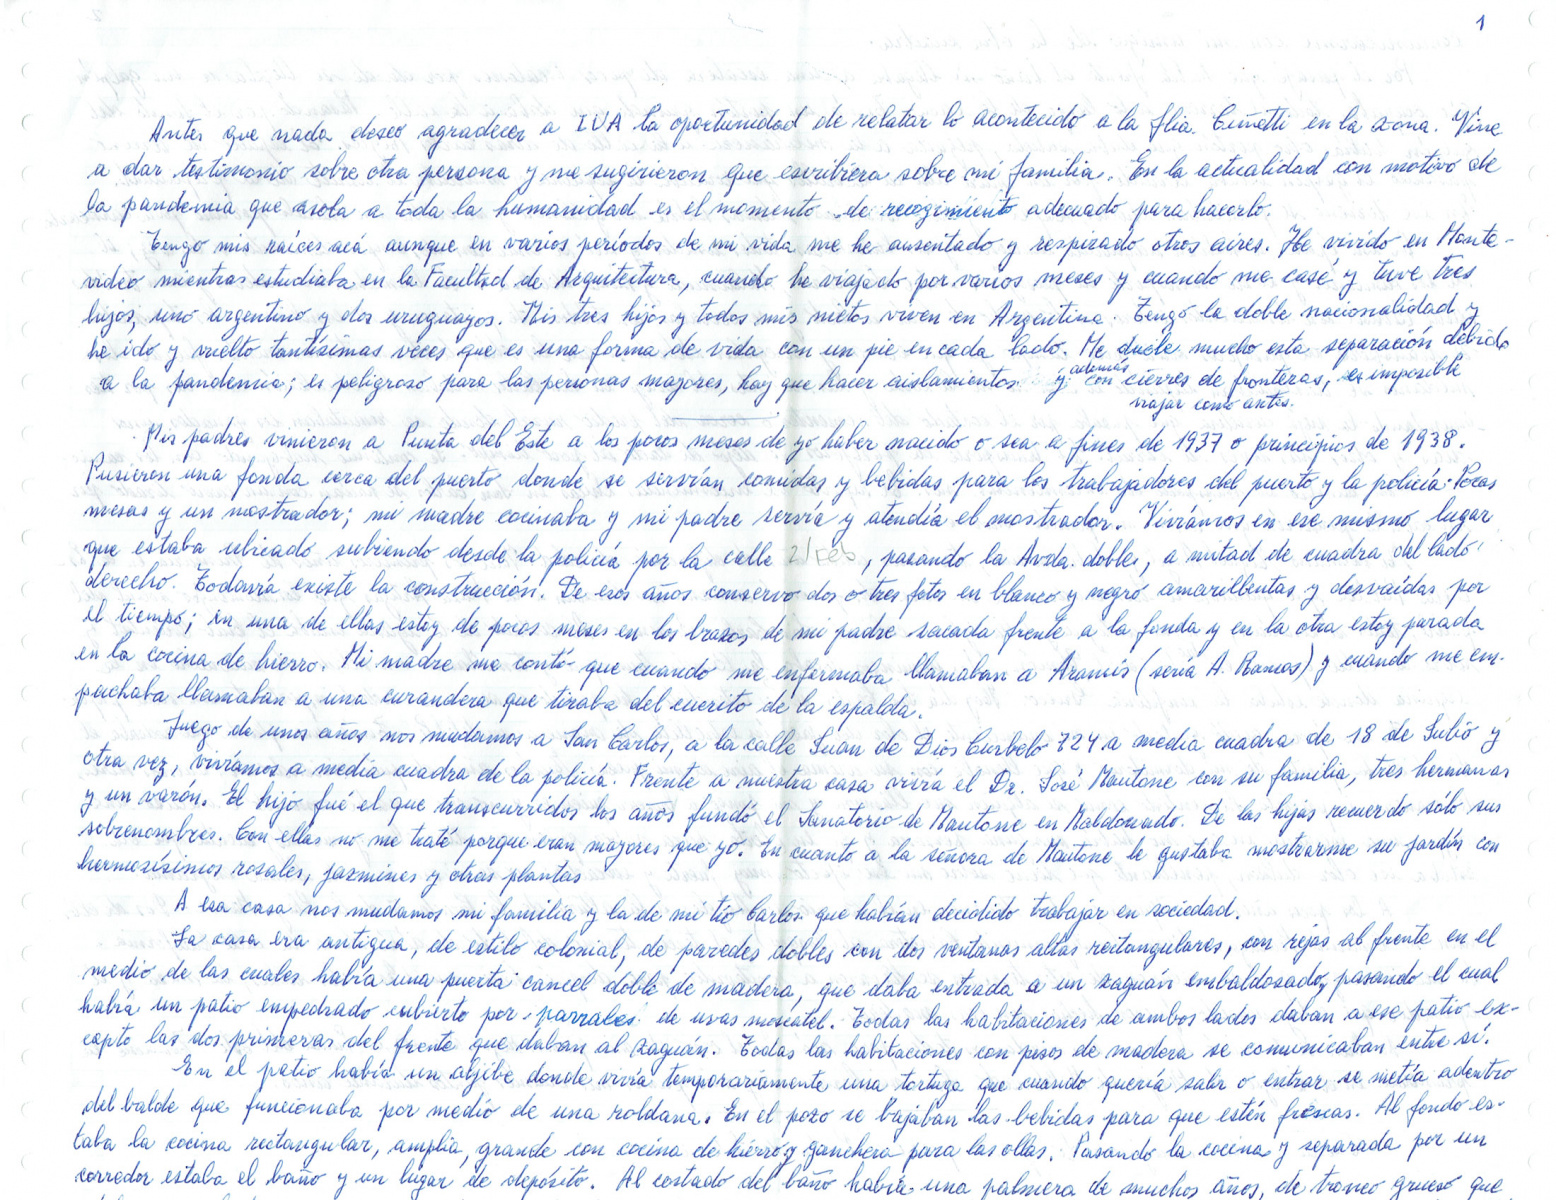 1
Antes que nada deseo agradecer a IVA la oportunidad de relatar lo acontecido a la flia. Cuñetti en la zona. Vine
a dar testimonio sobre otra persona y me sugirieron que escribiera sobre mi familia. En la actualidad con motivo de
la pandemia que asola a toda la humanidad es el momento de recogimiento adecuado para hacerlo.
Tengo mis raíces acá aunque en varios períodos de mi vida me he ausentado y respirado otros aires. He vivido en Monte-
video mientras estudiaba en la Facultad de Arquitectura, cuando he viajado por varios meses y cuando me casé y tuve tres
hijos, uno argentino y dos uruguayos. Mis tres hijos y todos mis nietos viven en Argentina. Tengo la doble nacionalidad y
he ido y vuelto tantísimas veces que es una forma de vida con un pie en cada lado. Me duele mucho esta separación debido
a la pandemia; es peligroso para las personas mayores, hay que hacer aislamientos y además con cierres de fronteras, es imposible
viajar como antes.
Mis padres vinieron a Punta del Este a los pocos meses de yo haber nacido o sea a fines de 1937 o principios de 1938.
Pusieron una fonda cerca del puerto donde se servían comidas y bebidas para los trabajadores del puerto y la policía. Pocas
mesas y un mostrador; mi madre cocinaba y mi padre servía y atendía el mostrador. Vivíamos en ese mismo lugar
que estaba ubicado subiendo desde la policía por la calle 2/Feb, pasando la Avda. dobles, a mitad de cuadra del lado
derecho. Todavía existe la construcción. De esos años conservo dos o tres fotos en blanco y negro amarillentas y desvaídas por
el tiempo; en una de ellas estoy de pocos meses en los brazos de mi padre sacada frente a la fonda y en la otra estoy parada
en la cocina de hierro. Mi madre me contó que cuando me enfermaba llamaban a Aramís (sería A. Ramos) y cuando me em-
pachaba llamaban a una curandera que tiraba del cuerito de la espalda.
Luego de unos años nos mudamos a San Carlos, a la calle Juan de Dios Curbelo 724 a media cuadra de 18 de Julio y
otra vez, vivíamos a media cuadra de la policía. Frente a nuestra casa vivía el Dr. José Mautone con su familia, tres hermanas
y un varón. El hijo fué el que transcurridos los años fundó el Sanatorio de Mautone en Maldonado. De las hijas recuerdo sólo sus
sobrenombres. Con ellas no me traté porque eran mayores que yo. En cuanto a la señora de Mautone le gustaba mostrarme su jardín con
hermosísimos rosales, jazmines y otras plantas
A esa casa nos mudamos mi familia y la de mi tío Carlos que habían decidido trabajar en sociedad.
La casa era antigua, de estilo colonial, de paredes dobles con dos ventanas altas rectangulares, con rejas al frente en el
medio de las cuales había una puerta cancel doble de madera, que daba entrada a un zaguán embaldosado, pasando el cual
había un patio empedrado cubierto por parrales de uvas moscatel. Todas las habitaciones de ambos lados daban a ese patio ex-
cepto las dos primeras del frente que daban al zaguán. Todas las habitaciones con pisos de madera se comunicaban entre sí.
En el patio había un aljibe donde vivía temporariamente una tortuga que cuando quería salir o entrar se metía adentro
del balde que funcionaba por medio de una roldana. En el pozo se bajaban las bebidas para que estén frescas. Al fondo es-
taba la cocina rectangular, amplia, grande con cocina de hierro y ganchera para las ollas. Pasando la cocina y separada por un
corredor estaba el baño y un lugar de depósito. Al costado del baño había una palmera de muchos años, de tronco grueso que